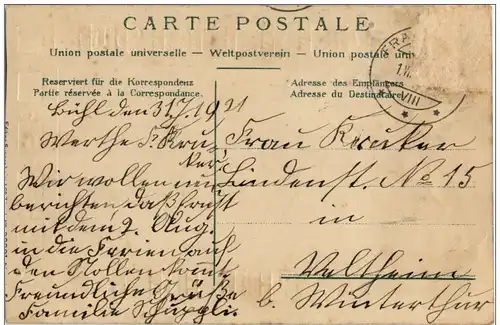 CARTE POSTALE
Union postale universelle — Weltpostverein — Union postale uni
Reserviert für die Korrespondenz
Partie réservée à la Correspondance.
Adresse des Empfängers
Adresse du Destinataire
VIII
Bühl den 31.7.1921
Werthe F. Kru-
ker.
Wir wollen nun
berichten daß
mit dem 2. Aug.
in die Ferien auf
den Stollen komt
Freundliche Grüße
Familie Schüppli.
Frau Kruker
Lindenst. No 15
in
Veltheim
b. Winterthur